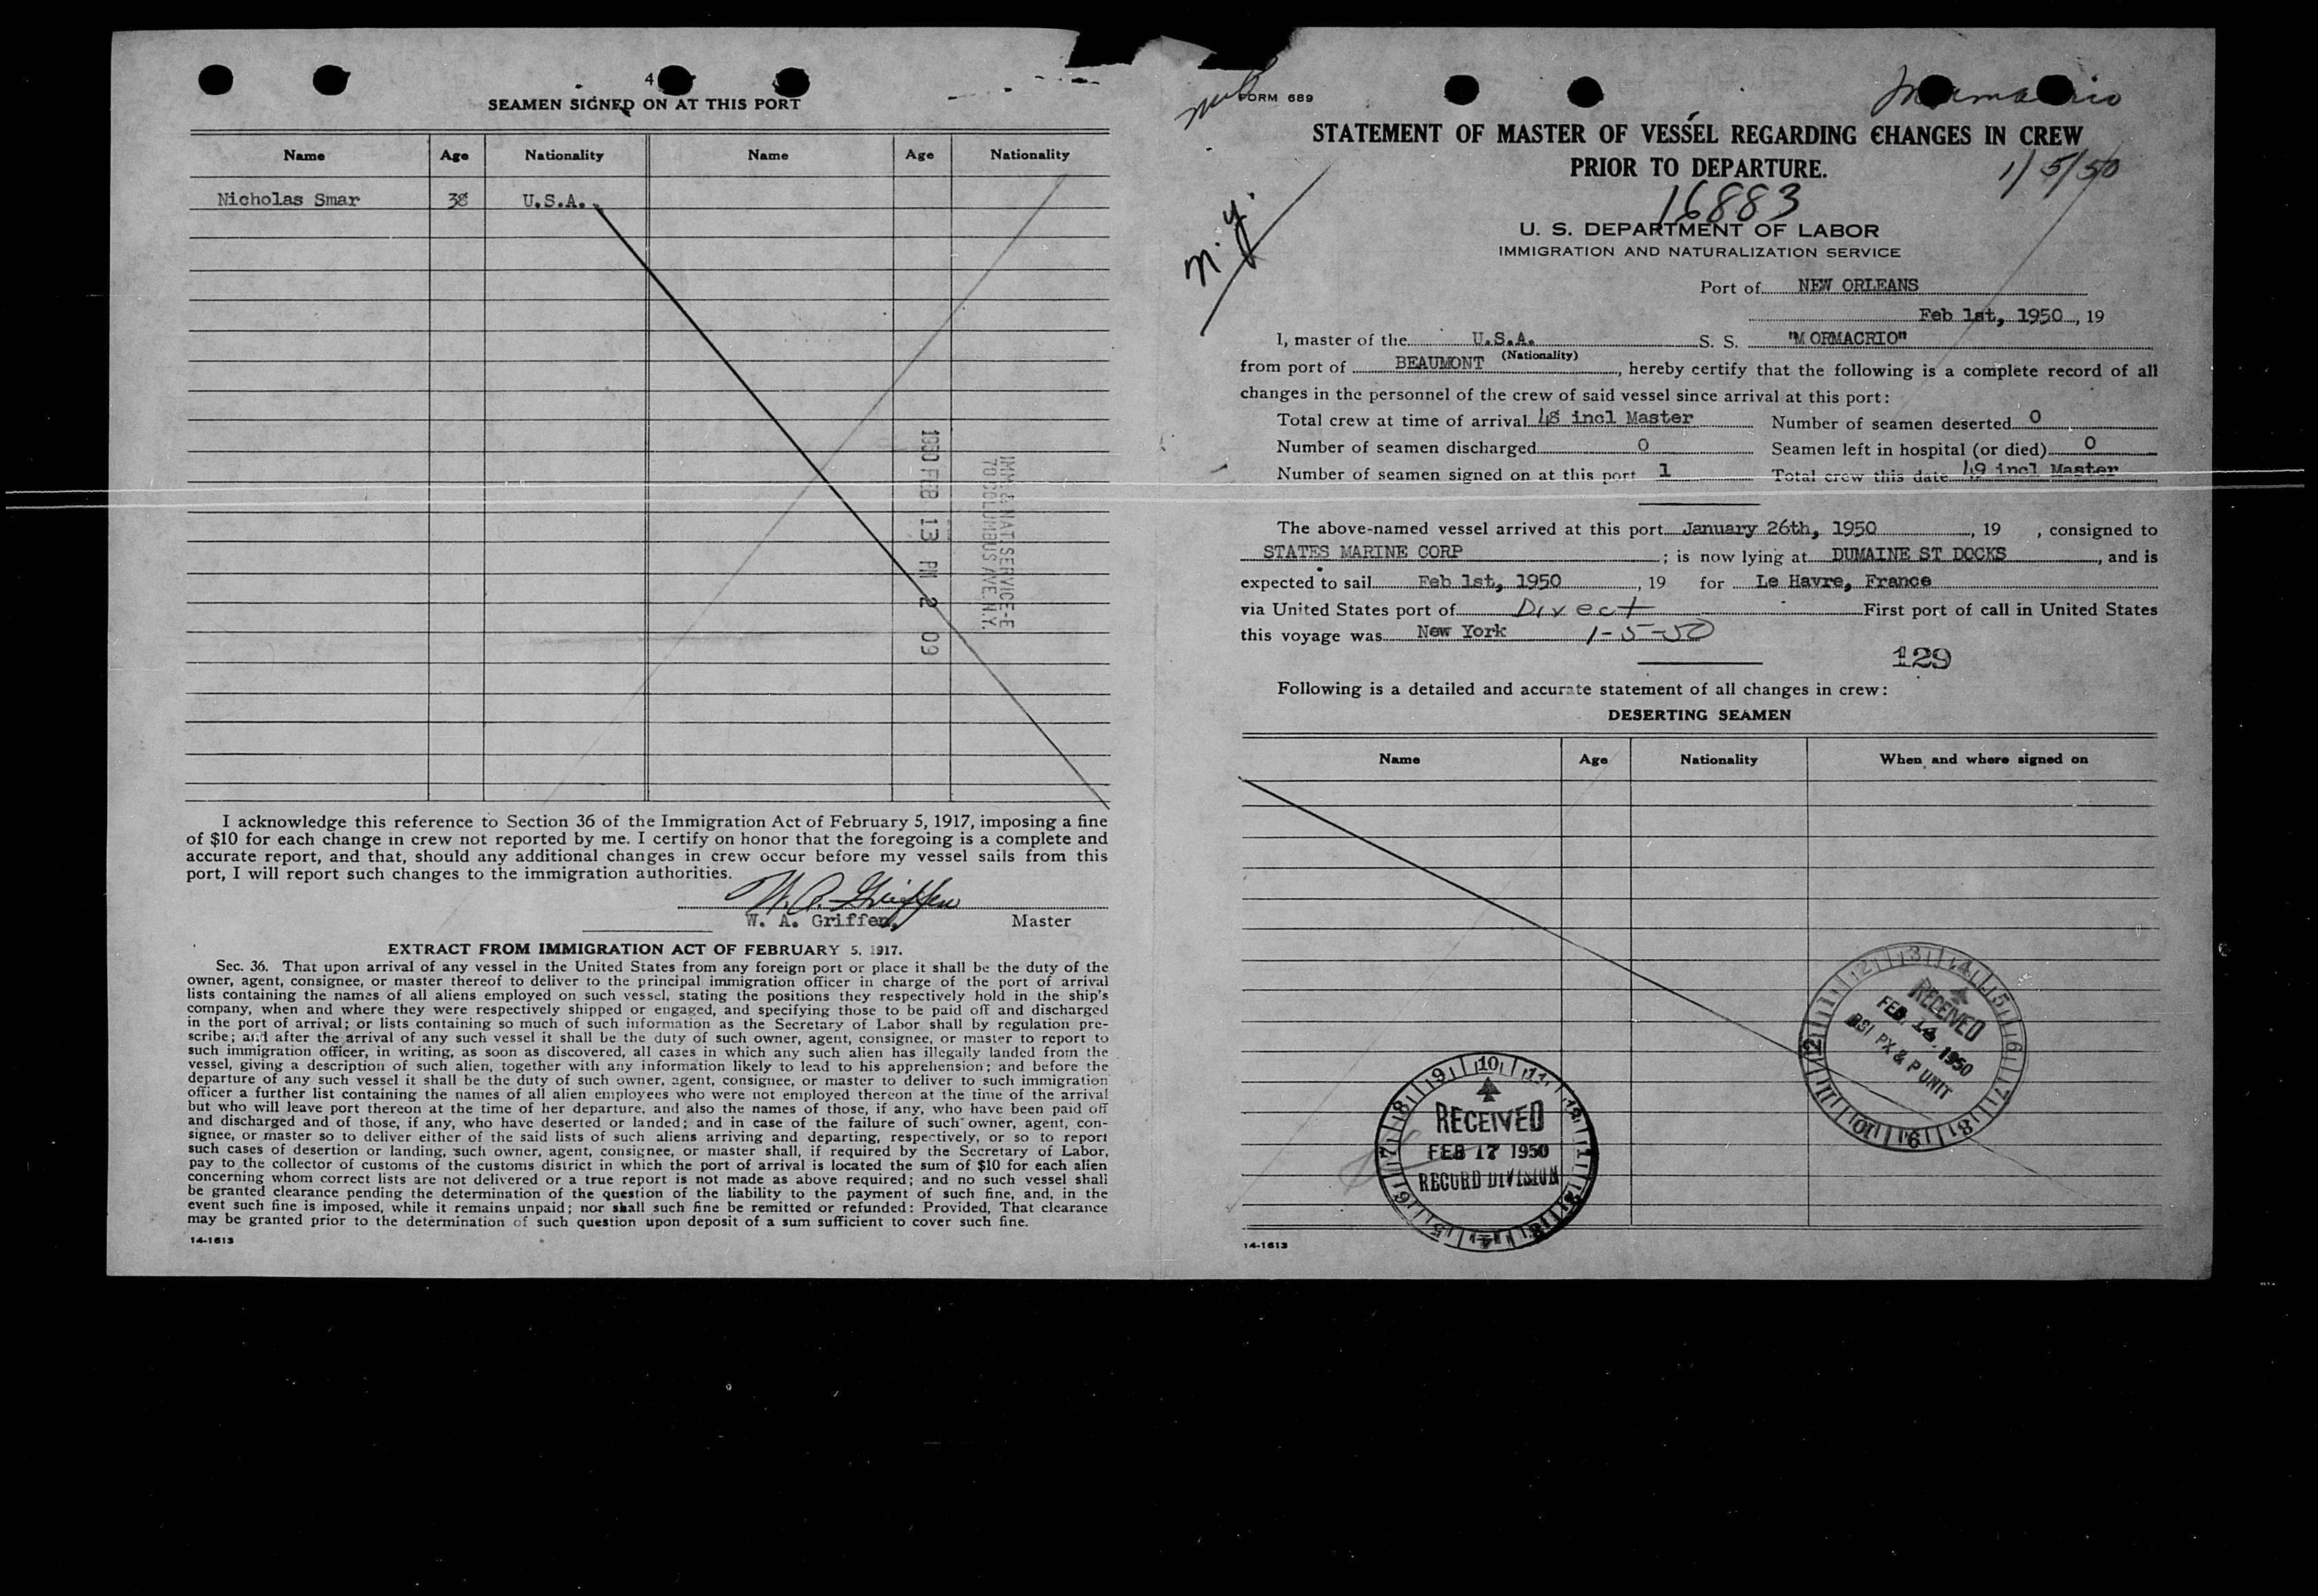 4
SEAMEN SIGNED ON AT THIS PORT
Name Age Nationality Name Age Nationality
Nicholas Smar 38 U.S.A.
1950 FEB 13 PM 2 09
IMM. & NAT. SERVICE-E
70 COLUMBUS AVE. N.Y.
I acknowledge this reference to Section 36 of the Immigration Act of February 5, 1917, imposing a fine
of $10 for each change in crew not reported by me. I certify on honor that the foregoing is a complete and
accurate report, and that, should any additional changes in crew occur before my vessel sails from this
port, I will report such changes to the immigration authorities.
W. A. Griffen
W. A. Griffen, Master
EXTRACT FROM IMMIGRATION ACT OF FEBRUARY 5, 1917.
Sec. 36. That upon arrival of any vessel in the United States from any foreign port or place it shall be the duty of the
owner, agent, consignee, or master thereof to deliver to the principal immigration officer in charge of the port of arrival
lists containing the names of all aliens employed on such vessel, stating the positions they respectively hold in the ship's
company, when and where they were respectively shipped or engaged, and specifying those to be paid off and discharged
in the port of arrival; or lists containing so much of such information as the Secretary of Labor shall by regulation pre-
scribe; and after the arrival of any such vessel it shall be the duty of such owner, agent, consignee, or master to report to
such immigration officer, in writing, as soon as discovered, all cases in which any such alien has illegally landed from the
vessel, giving a description of such alien, together with any information likely to lead to his apprehension; and before the
departure of any such vessel it shall be the duty of such owner, agent, consignee, or master to deliver to such immigration
officer a further list containing the names of all alien employees who were not employed thereon at the time of the arrival
but who will leave port thereon at the time of her departure, and also the names of those, if any, who have been paid off
and discharged and of those, if any, who have deserted or landed; and in case of the failure of such owner, agent, con-
signee, or master so to deliver either of the said lists of such aliens arriving and departing, respectively, or so to report
such cases of desertion or landing, such owner, agent, consignee, or master shall, if required by the Secretary of Labor,
pay to the collector of customs of the customs district in which the port of arrival is located the sum of $10 for each alien
concerning whom correct lists are not delivered or a true report is not made as above required; and no such vessel shall
be granted clearance pending the determination of the question of the liability to the payment of such fine, and, in the
event such fine is imposed, while it remains unpaid; nor shall such fine be remitted or refunded: Provided, That clearance
may be granted prior to the determination of such question upon deposit of a sum sufficient to cover such fine.
14-1613
FORM 689
Mormacrio
STATEMENT OF MASTER OF VESSEL REGARDING CHANGES IN CREW
PRIOR TO DEPARTURE.
1/5/50
16883
N.Y.
U. S. DEPARTMENT OF LABOR
IMMIGRATION AND NATURALIZATION SERVICE
Port of NEW ORLEANS
Feb 1st, 1950, 19
I, master of the U.S.A. S. S. "MORMACRIO"
(Nationality)
from port of BEAUMONT, hereby certify that the following is a complete record of all
changes in the personnel of the crew of said vessel since arrival at this port:
Total crew at time of arrival 48 incl Master Number of seamen deserted 0
Number of seamen discharged 0 Seamen left in hospital (or died) 0
Number of seamen signed on at this port 1 Total crew this date 49 incl Master
The above-named vessel arrived at this port January 26th, 1950, 19 , consigned to
STATES MARINE CORP; is now lying at DUMAINE ST DOCKS, and is
expected to sail Feb 1st, 1950, 19 for Le Havre, France
via United States port of Direct First port of call in United States
this voyage was New York 1-5-50
129
Following is a detailed and accurate statement of all changes in crew:
DESERTING SEAMEN
Name Age Nationality When and where signed on
RECEIVED
FEB. 14. 1950
BSI PX & P UNIT
1 2 3 4 5 6 7 8 9 10 11 12
RECEIVED
FEB 17 1950
RECORD DIVISION
9 10 11 12 1 2 3 4 5 6 7 8
14-1613